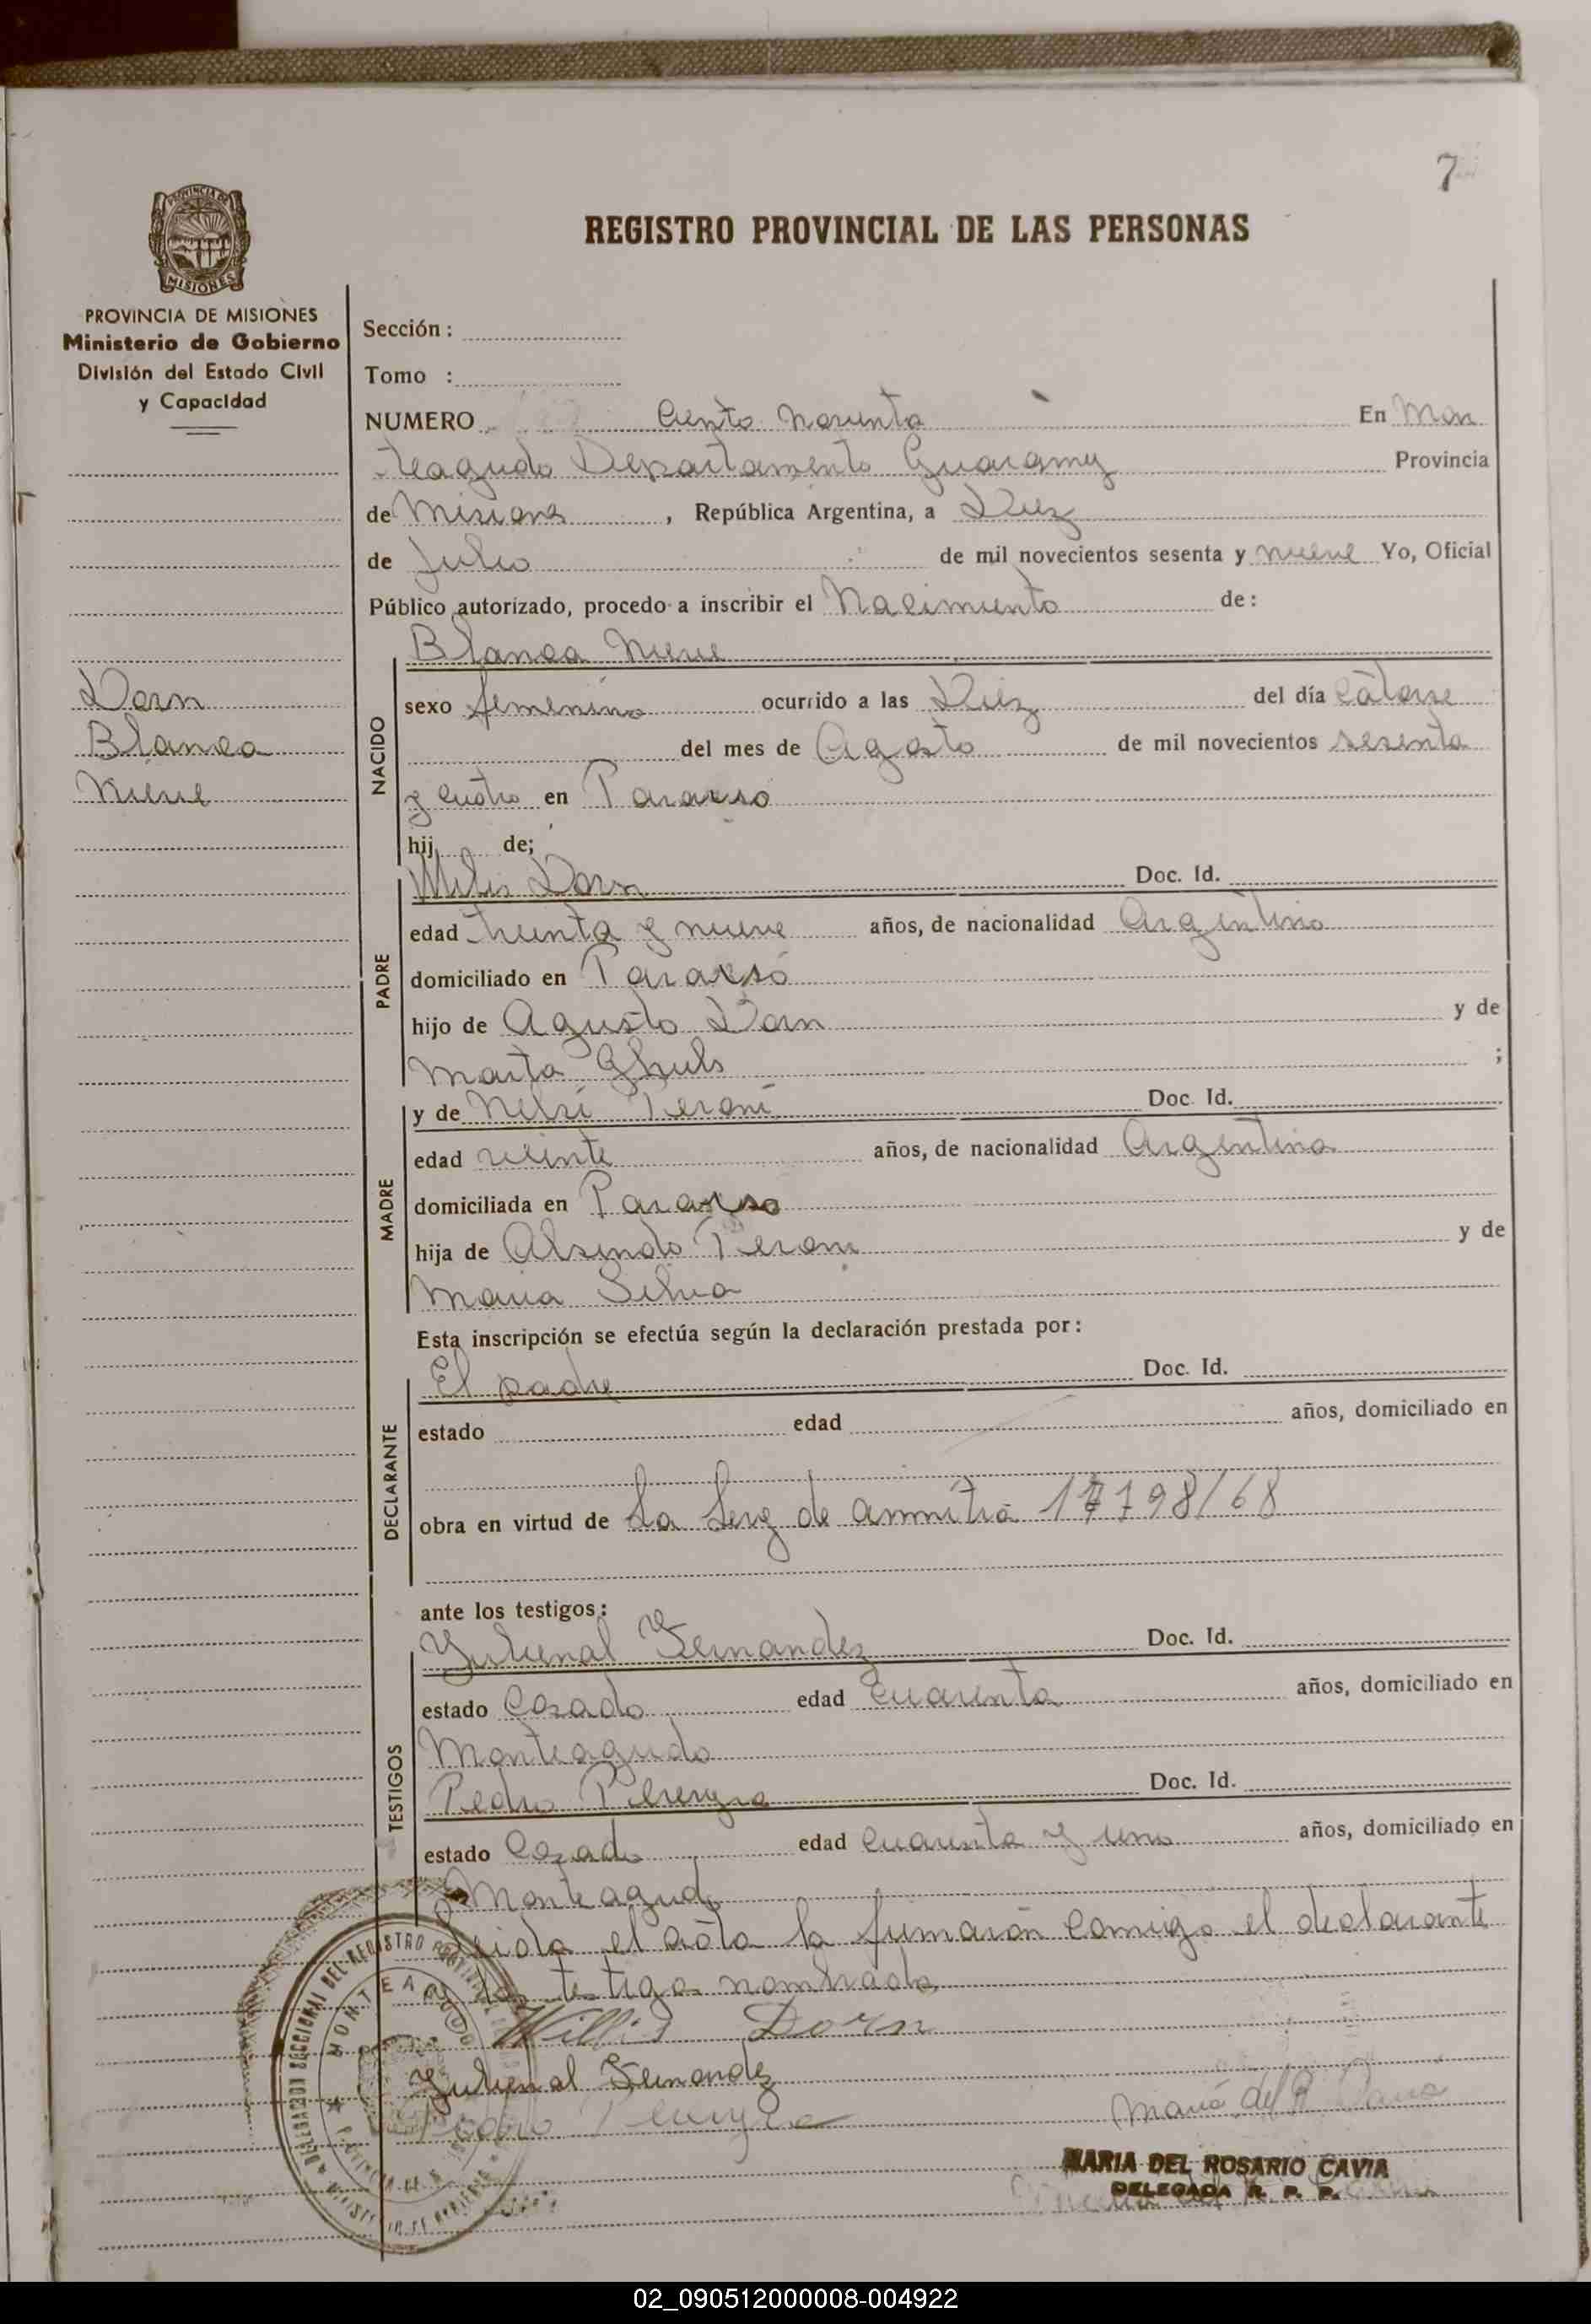 7
PROVINCIA DE
MISIONES
REGISTRO PROVINCIAL DE LAS PERSONAS
PROVINCIA DE MISIONES
Ministerio de Gobierno
División del Estado Civil
y Capacidad
Dorn
Blanca
Nieve
Sección :
Tomo :
NUMERO Ciento Noventa En Mon
teagudo Departamento Guarany Provincia
de Misiones , República Argentina, a Diez
de Julio de mil novecientos sesenta y nueve Yo, Oficial
Público autorizado, procedo a inscribir el Nacimiento de:
NACIDO
Blanca Nieve
sexo femenino ocurrido a las Diez del día Catorse
del mes de Agosto de mil novecientos sesenta
y cuatro en Paraxso
hij de;
PADRE
Dorn Doc. Id.
edad treinta y nueve años, de nacionalidad Argentino
domiciliado en Paraxso
hijo de Agusto Dorn y de
Marta ;
MADRE
y de Nelsi Peroni Doc. Id.
edad veinte años, de nacionalidad Argentina
domiciliada en Paraxso
hija de Alsindo Peroni y de
Maria Silva
Esta inscripción se efectúa según la declaración prestada por:
DECLARANTE
El padre Doc. Id.
estado edad años, domiciliado en
obra en virtud de La de 98/68
ante los testigos:
TESTIGOS
Juvenal Fernandez Doc. Id.
estado Casado edad cuarenta años, domiciliado en
Monteagudo
Pedro Doc. Id.
estado Casado edad cuarenta y uno años, domiciliado en
Monteagudo
Leida el acta la firmaron comigo el declarante
y los testigo nombrado
Willis Dorn
Juvenal Fernandez
Pedro
Maria del R. Cavia
MARIA DEL ROSARIO CAVIA
DELEGADA R. P. P.
MONTEAGUDO
02_090512000008-004922